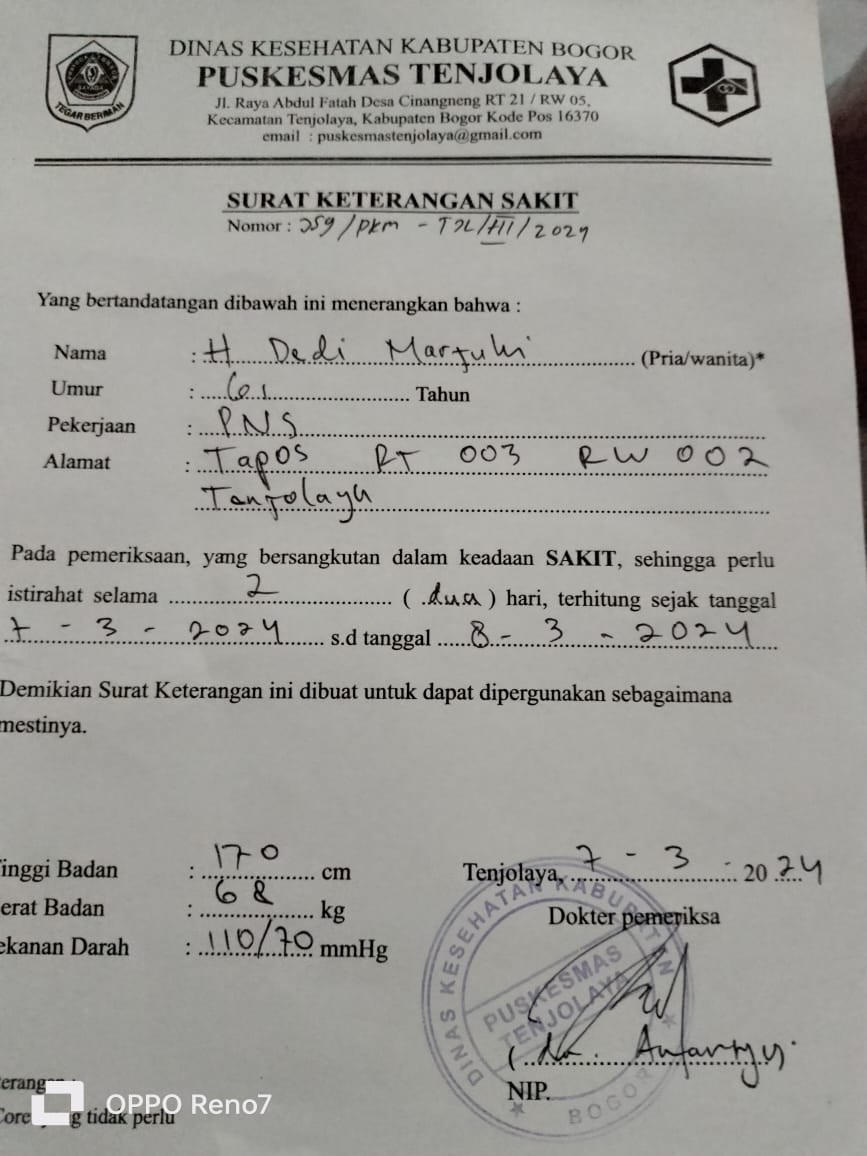 DINAS KESEHATAN KABUPATEN BOGOR
PUSKESMAS TENJOLAYA
Jl. Raya Abdul Fatah Desa Cinangneng RT 21 / RW 05,
Kecamatan Tenjolaya, Kabupaten Bogor Kode Pos 16370
email : puskesmastenjolaya@gmail.com
TEGAR BERIMAN
SURAT KETERANGAN SAKIT
Nomor : 259/PKM - TJL/III/2024
Yang bertandatangan dibawah ini menerangkan bahwa :
Nama : H Dedi Marzuki (Pria/wanita)*
Umur : 61 Tahun
Pekerjaan : PNS
Alamat : Tapos RT 003 RW 002
Tenjolaya
Pada pemeriksaan, yang bersangkutan dalam keadaan SAKIT, sehingga perlu
istirahat selama 2 (dua) hari, terhitung sejak tanggal
7 - 3 - 2024 s.d tanggal 8 - 3 - 2024
Demikian Surat Keterangan ini dibuat untuk dapat dipergunakan sebagaimana
mestinya.
inggi Badan : 170 cm
erat Badan : 68 kg
ekanan Darah : 110/70 mmHg
Tenjolaya, 7 - 3 - 2024
Dokter pemeriksa
DINAS KESEHATAN KABUPATEN
PUSKESMAS
TENJOLAYA
BOGOR
(dr.
NIP.
OPPO Reno7
g tidak perlu